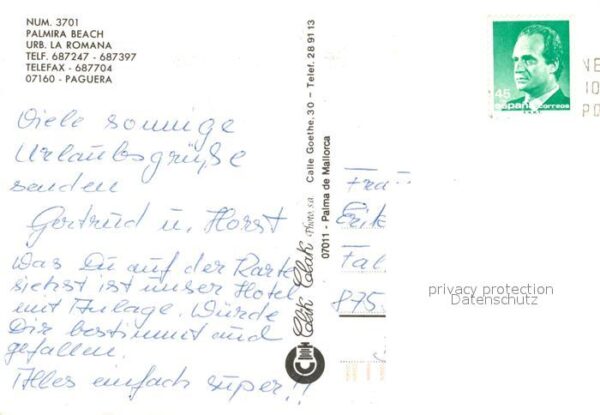 NUM. 3701
PALMIRA BEACH
URB. LA ROMANA
TELF. 687247 - 687397
TELEFAX - 687704
07160 - PAGUERA
Viele sonnige
Urlaubsgrüße
senden
Gertrud u. Horst
Was Du auf der Karte
siehst ist unser Hotel
mit Anlage. Würde
Dir bestimmt auch
gefallen.
Alles einfach super!!
Clik Clak Photo, s.a. Calle Goethe, 30 - Telef. 28 91 13
07011 - Palma de Mallorca
45
españa correos
NE
IO
PO
Frau
Erik
Fal
875
privacy protection
Datenschutz